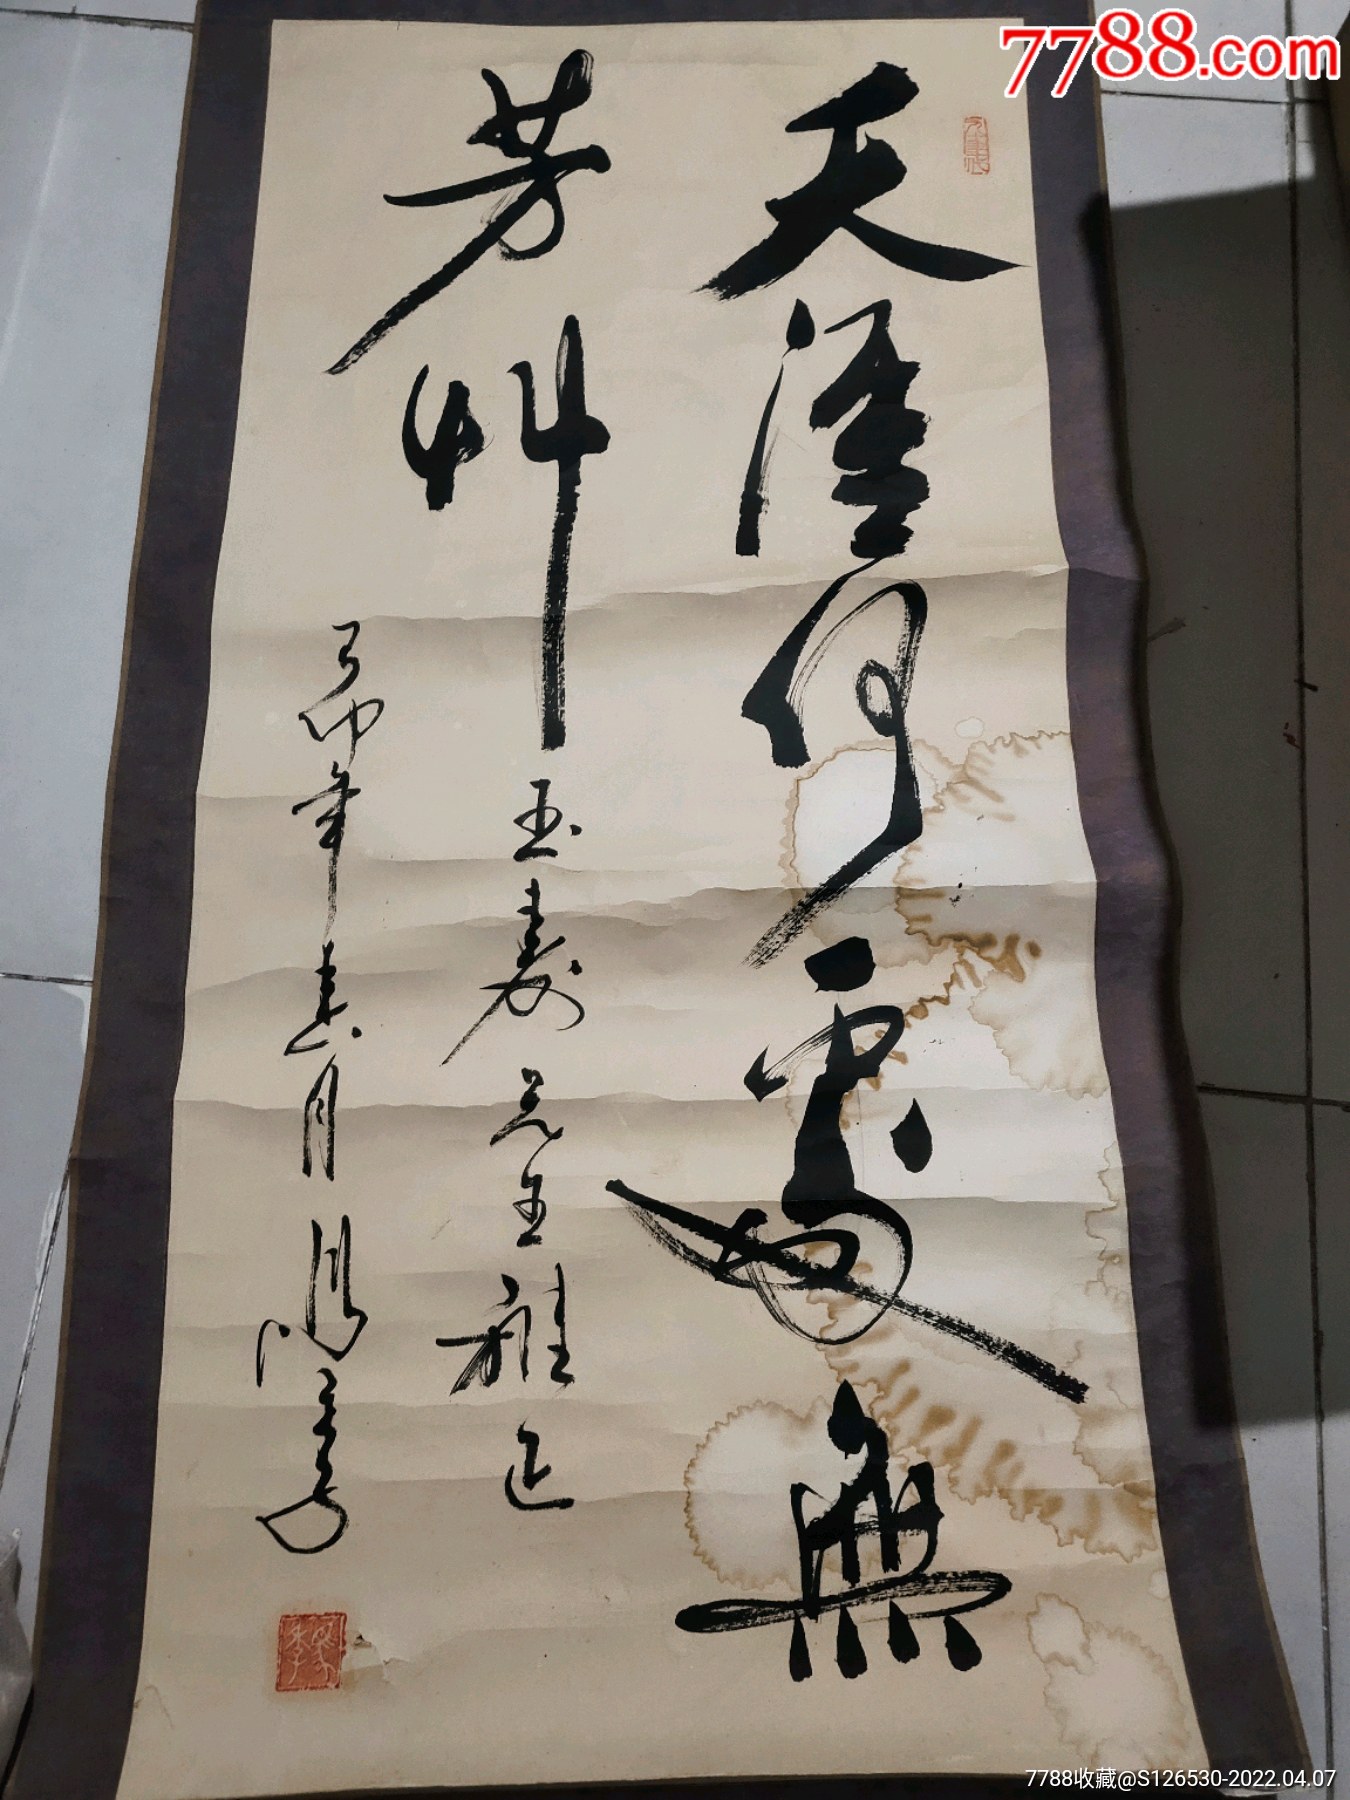 天涯何處無
芳艸
玉壽先生雅正
癸卯年春月
7788.com
7788收藏@S126530-2022.04.07